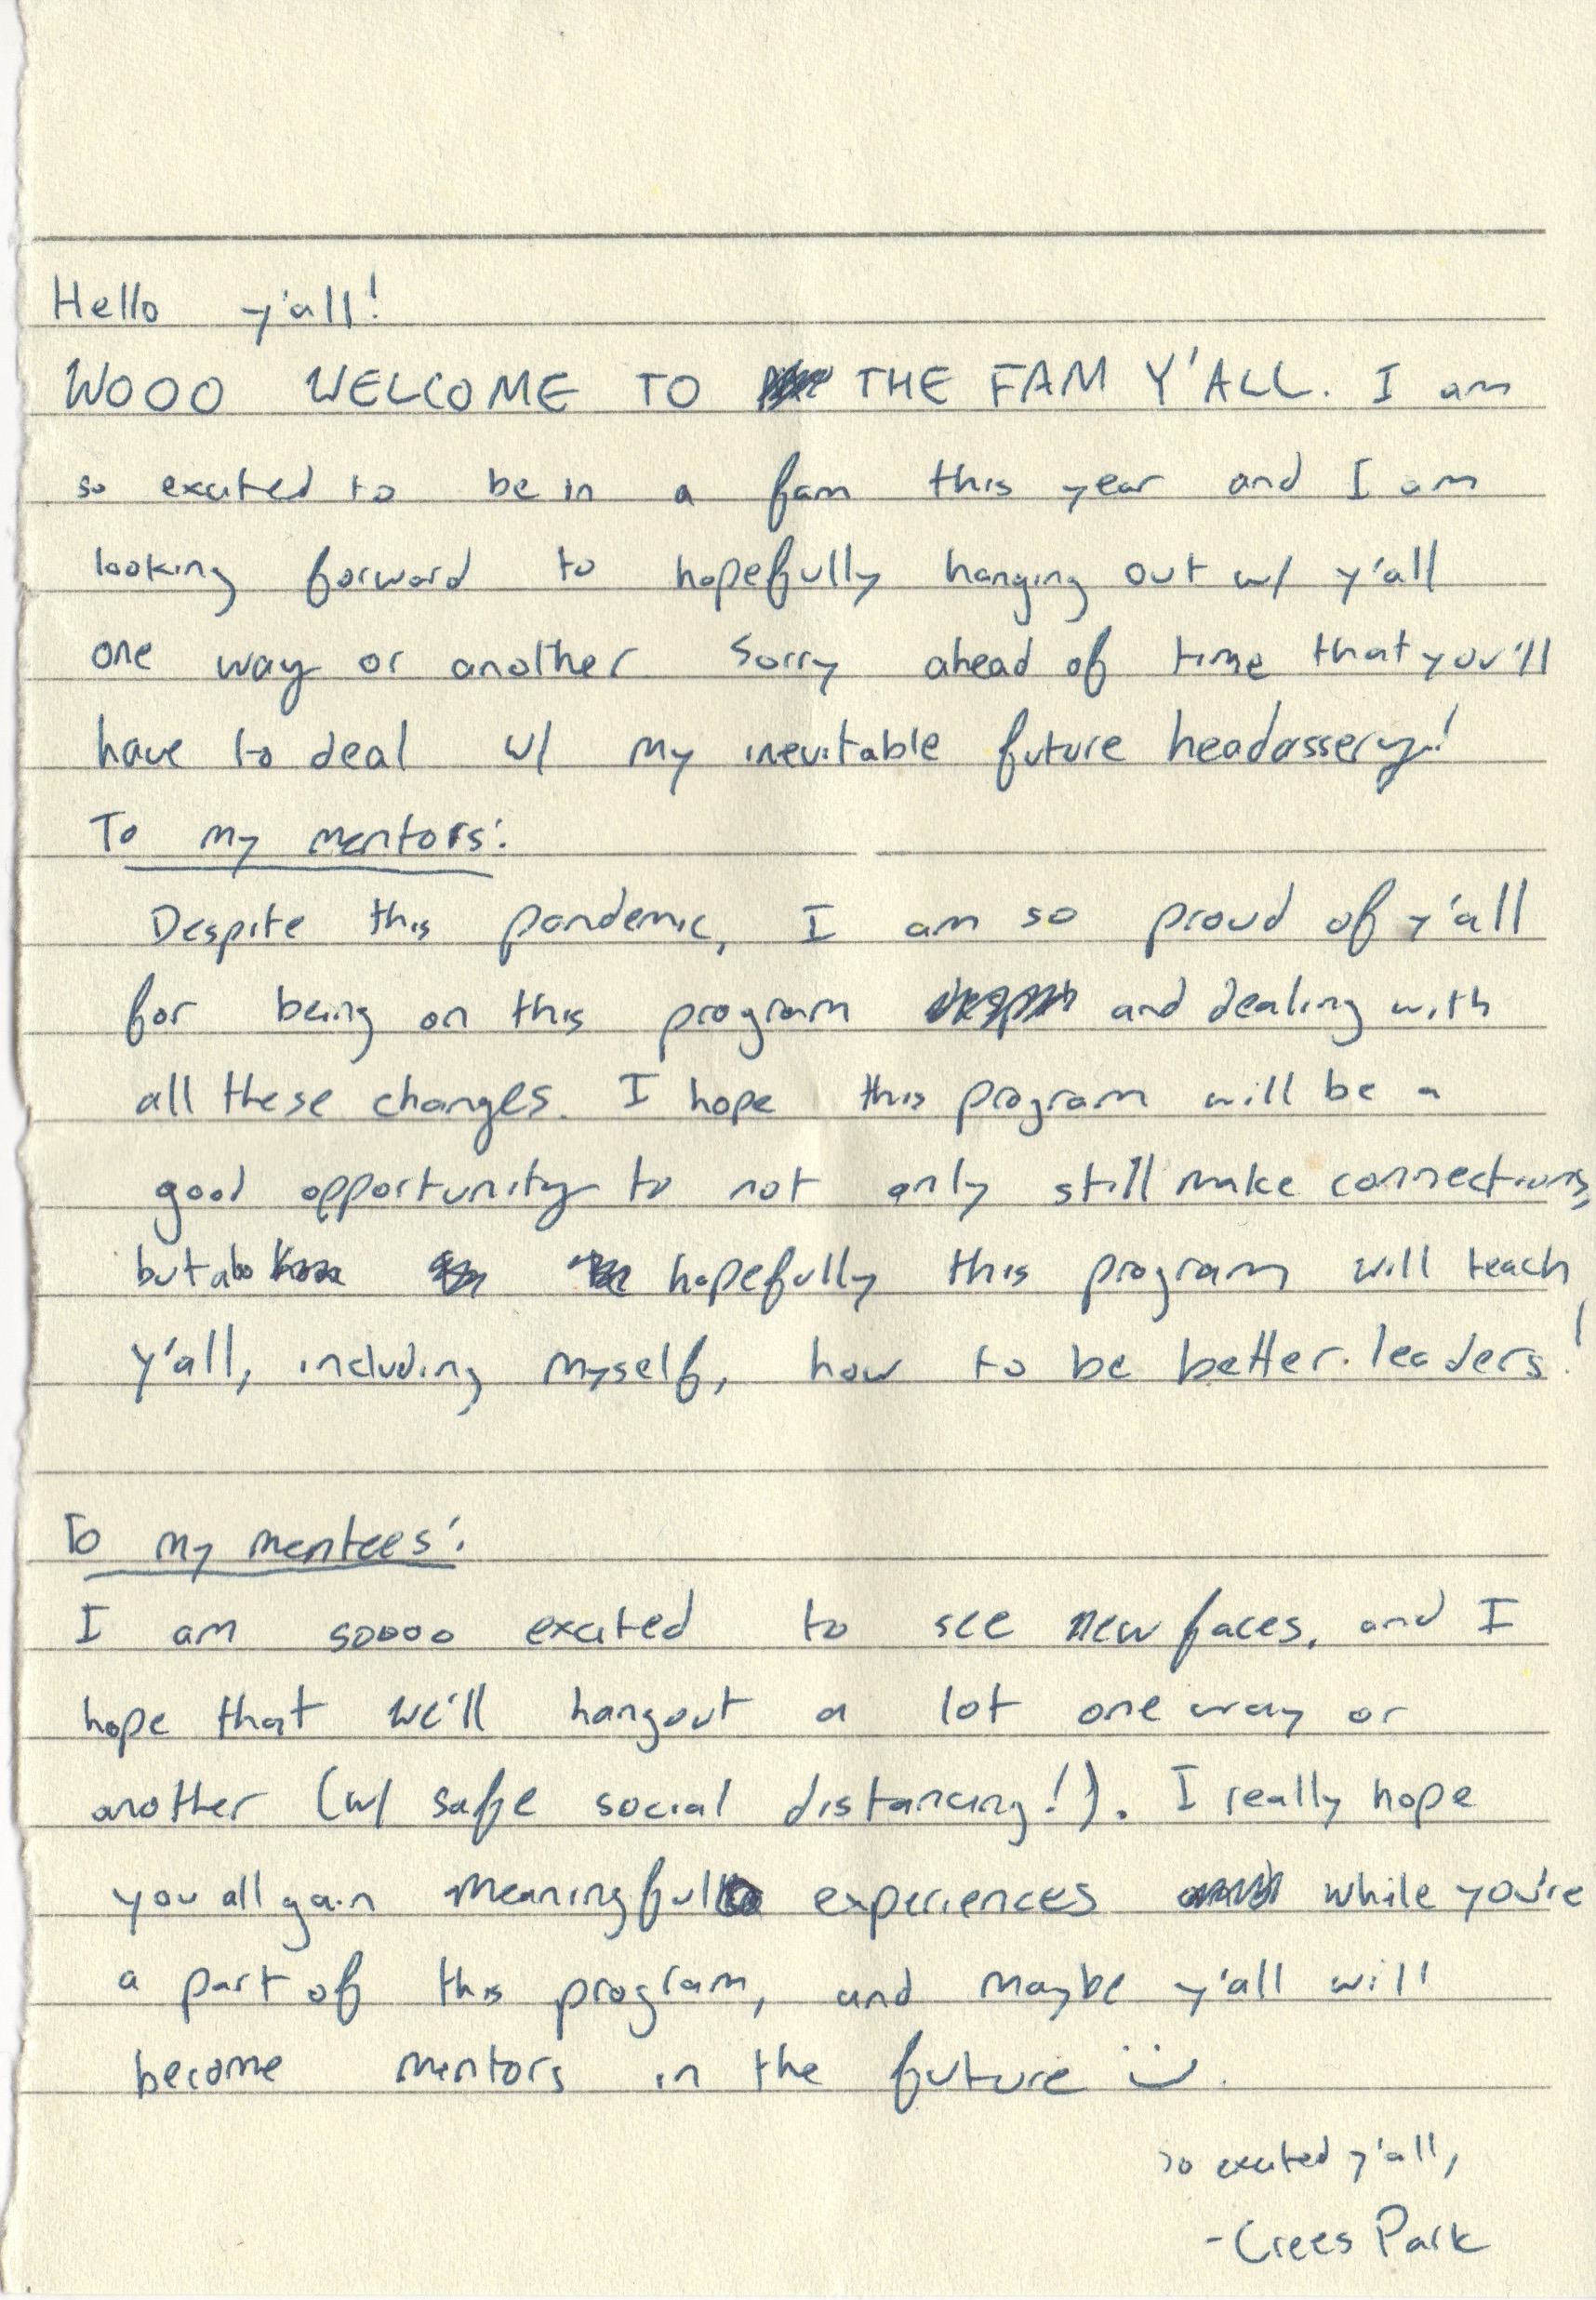 Hello y'all!
WOOO WELCOME TO THE FAM Y'ALL. I am
so excited to be in a fam this year and I am
looking forward to hopefully hanging out w/ y'all
one way or another. Sorry ahead of time that you'll
have to deal w/ my inevitable future headassery!
To my mentors:
Despite this pandemic, I am so proud of y'all
for being on this program and dealing with
all these changes. I hope this program will be a
good opportunity to not only still make connections,
but also hopefully this program will teach
y'all, including myself, how to be better leaders!
To my mentees:
I am soooo excited to see new faces, and I
hope that we'll hangout a lot one way or
another (w/ safe social distancing!). I really hope
you all gain meaningful experiences while you're
a part of this program, and maybe y'all will
become mentors in the future :).
so excited y'all,
-Crees Park